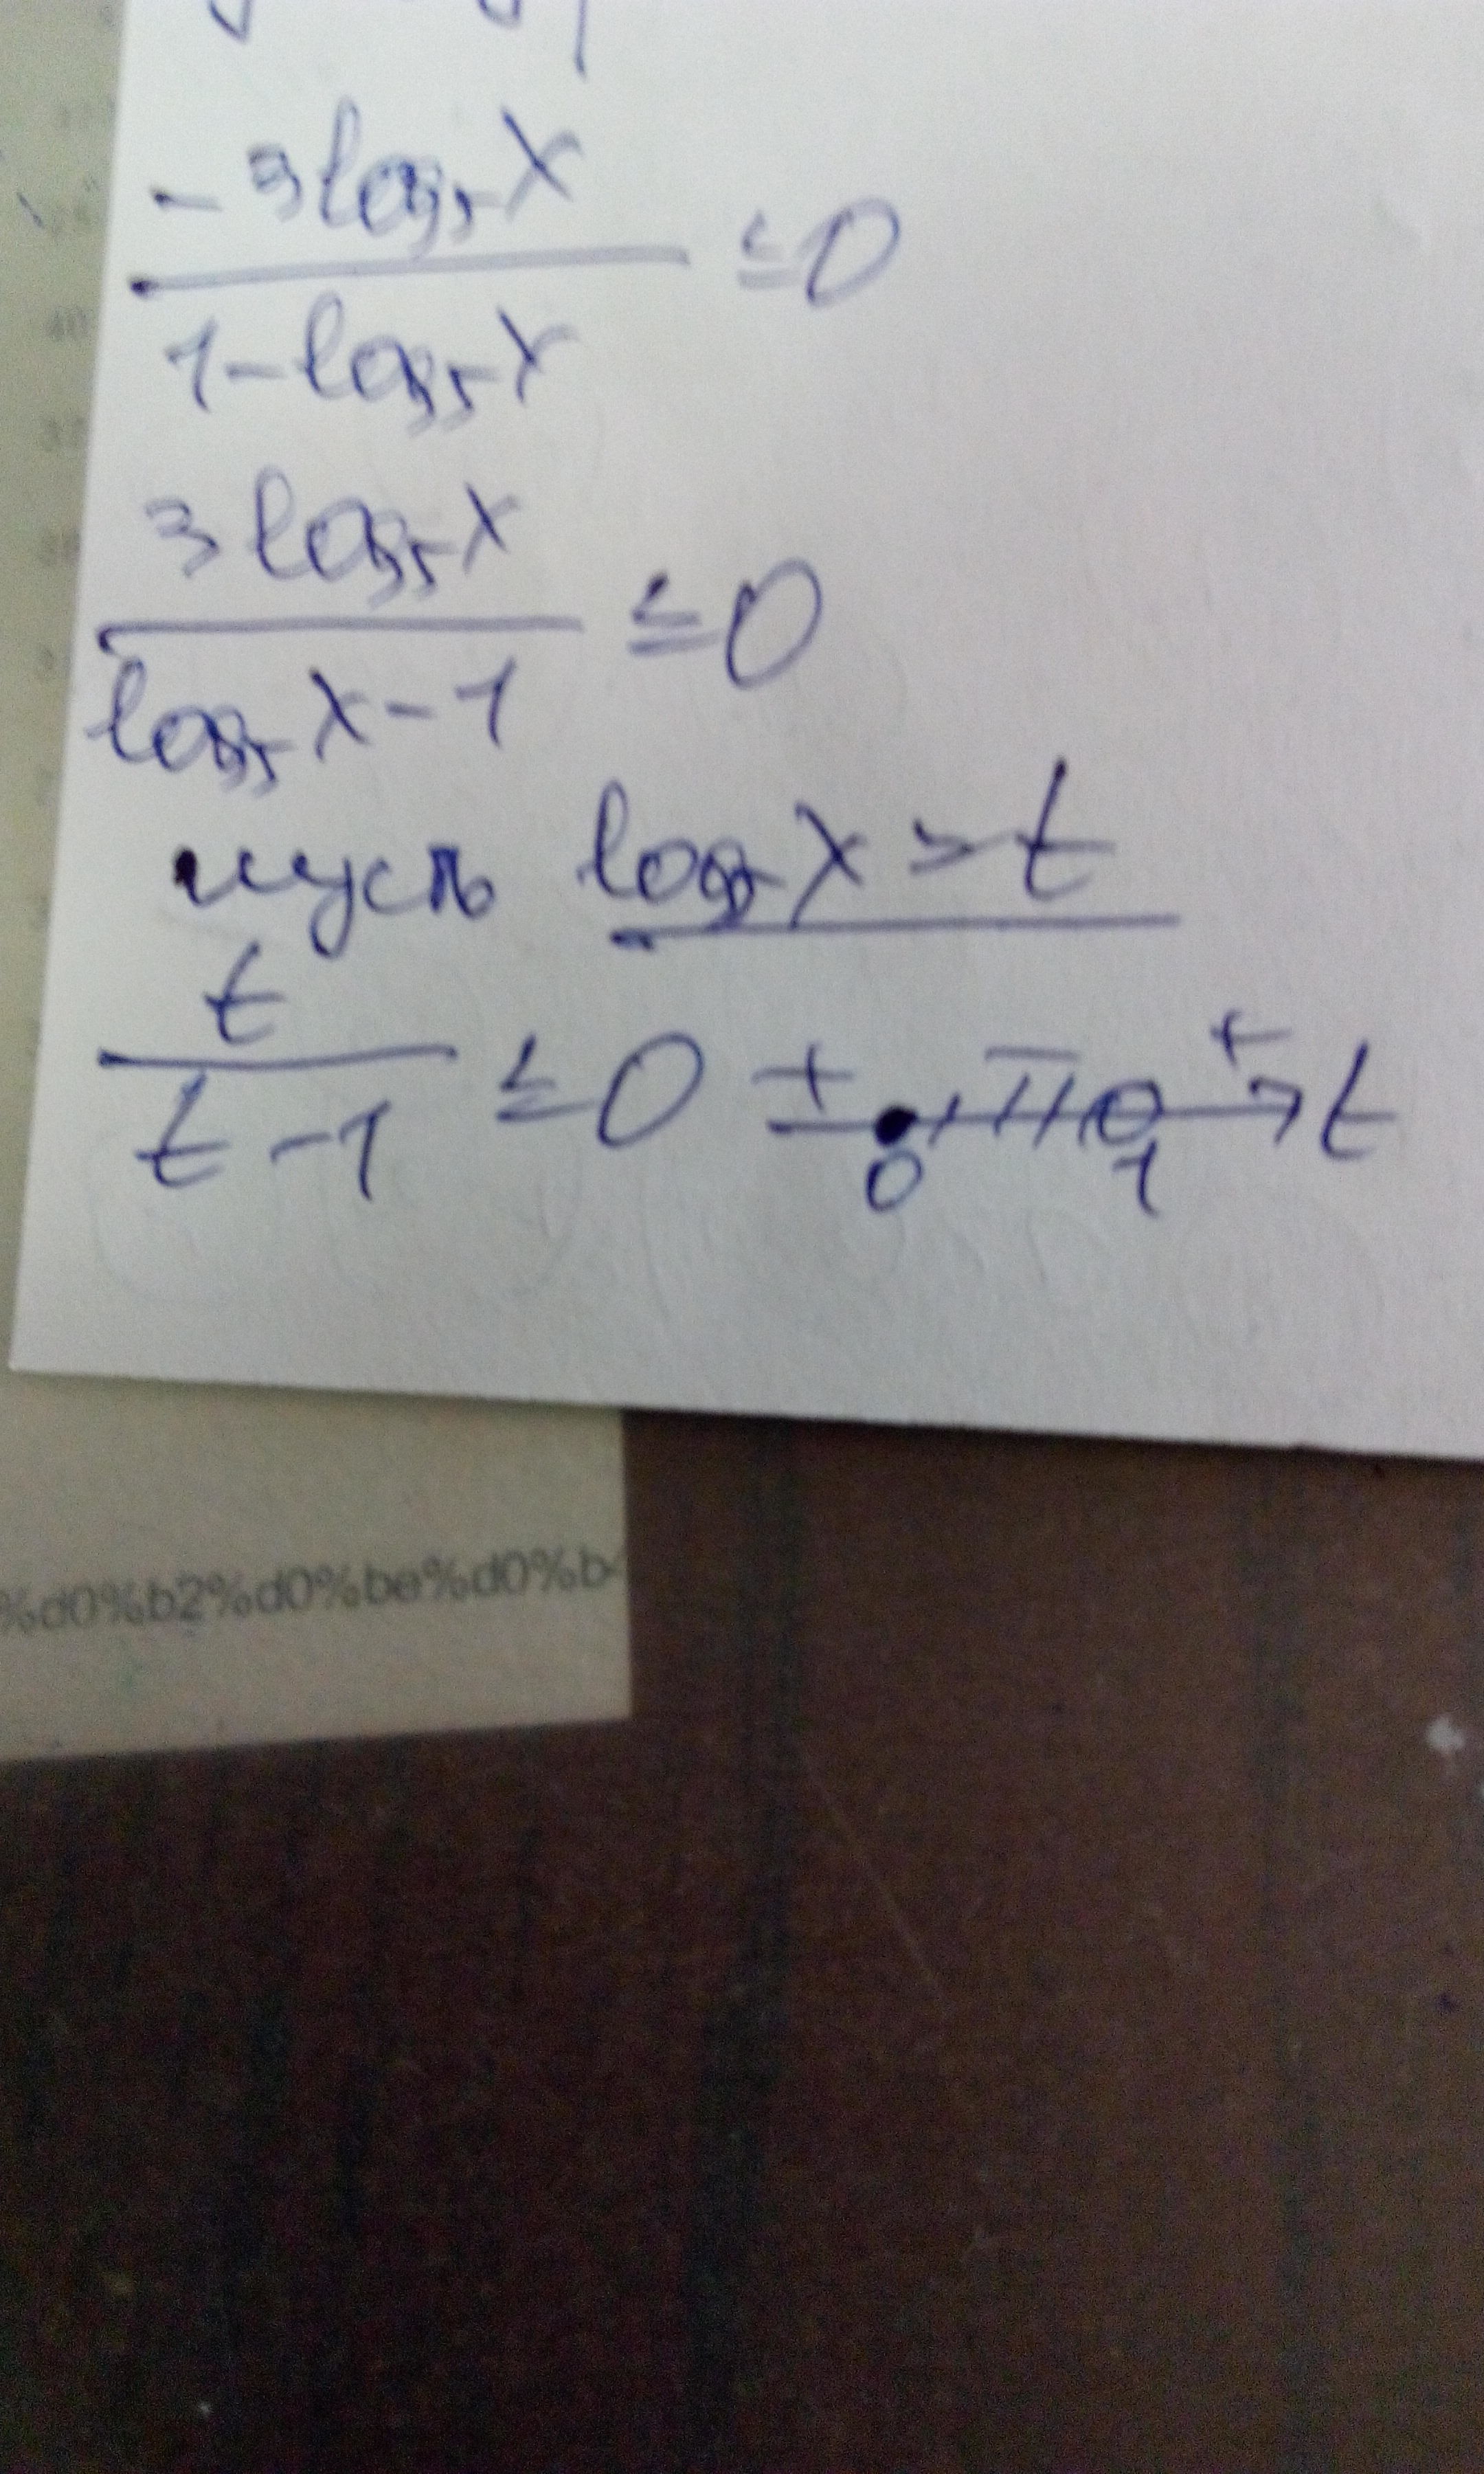 - 3 log₅ x
≤ 0
1 - log₅ x
3 log₅ x
≤ 0
log₅ x - 1
пусть log₅ x = t
t
≤ 0
t - 1
+ - + t
0 1
%d0%b2%d0%be%d0%b